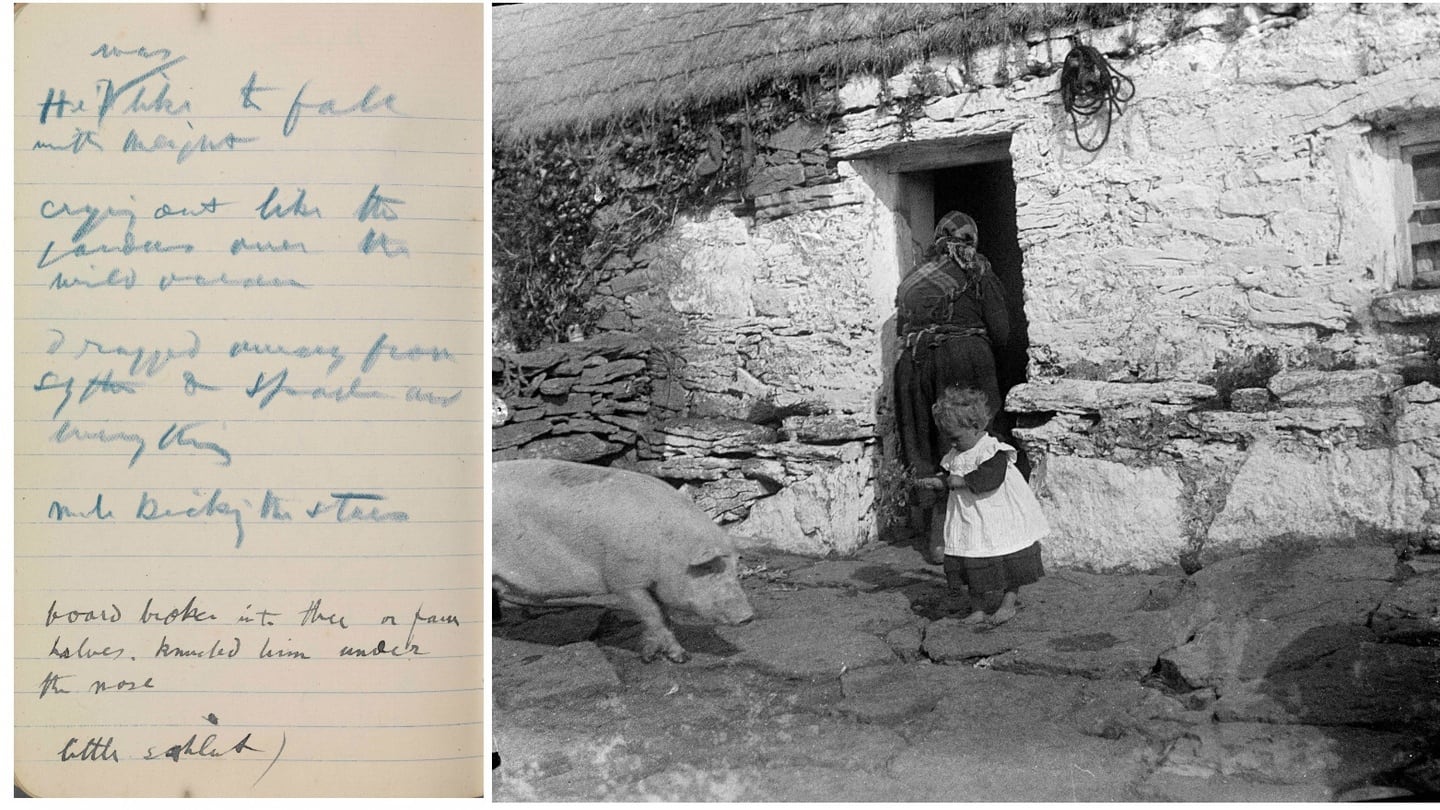 was
He like to fall
with weight
crying out like the
over the
wild ocean
Dragged away from
scythe & spade and
every thing
mule kicking the stars
board broke into three or four
halves. knuckled him under
the nose
little